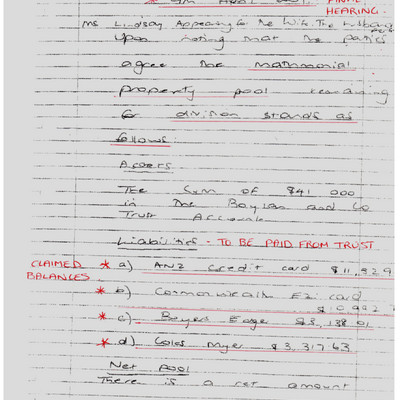 FINAL
HEARING.
Ms Lindsay Appearing for the Wife. The Husband
Upon noting that the parties
agree the matrimonial
property pool remaining
for division stands as
follows.
Assets.
The sum of $41 000
in the Baylan and Co
Trust Account
Liabilities - TO BE PAID FROM TRUST
CLAIMED * a) ANZ credit card $11,829
BALANCES * b) Commonwealth Ez card
* c) Buyers Edge $3,138.01
* d) Coles Myer $3,317.63
Net Pool
There is a net amount